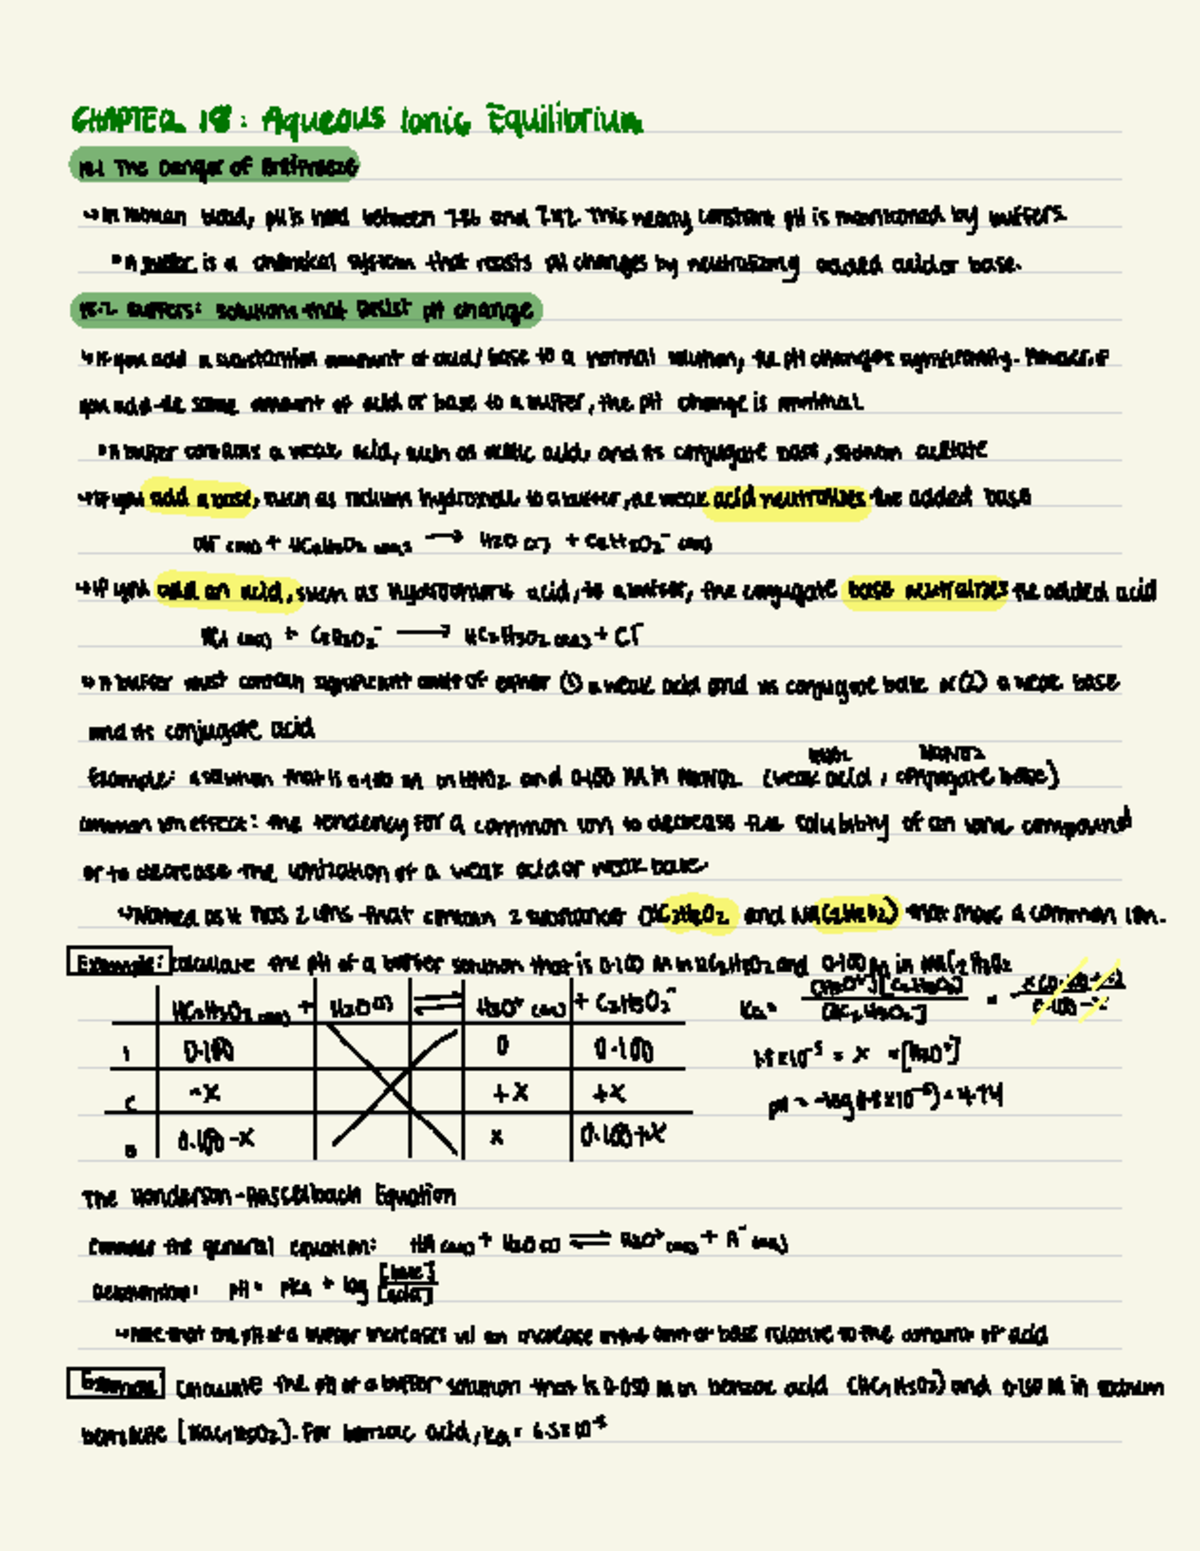 CHAPTER 18: Aqueous Ionic Equilibrium
18.1 The Danger of Antifreeze
↳ In human blood, pH is held between 7.36 and 7.42 This nearly constant pH is maintained by buffers.
• A buffer is a chemical system that resists pH changes by neutralizing added acid or base.
18.2 Buffers: Solutions that Resist pH change
↳ If you add a substantial amount of acid/base to a normal solution, the pH changes significantly. However, if
you add the same amount of acid or base to a buffer, the pH change is minimal
• A buffer contains a weak acid, such as acetic acid, and its conjugate base, sodium acetate
↳ If you add a base, such as sodium hydroxide to a buffer, the weak acid neutralizes the added base
OH⁻ (aq) + HC₂H₃O₂ (aq) → H₂O (l) + C₂H₃O₂⁻ (aq)
↳ If you add an acid, such as hydrochloric acid, to a buffer, the conjugate base neutralizes the added acid
HCl (aq) + C₂H₃O₂⁻ → HC₂H₃O₂ (aq) + Cl⁻
↳ A buffer must contain significant amts of either ① a weak acid and its conjugate base or (2) a weak base
and its conjugate acid
HNO₂ NaNO₂
Example: a solution that is 0.100 M in HNO₂ and 0.100 M in NaNO₂ (weak acid, conjugate base)
common ion effect: the tendency for a common ion to decrease the solubility of an ionic compound
or to decrease the ionization of a weak acid or weak base.
↳ Named as it has 2 ions that contain 2 substances (HC₂H₃O₂ and Na(C₂H₃O₂) that share a common ion.
Example: calculate the pH of a buffer solution that is 0.100 M in HC₂H₃O₂ and 0.100 M in NaC₂H₃O₂
HC₂H₃O₂ (aq) + H₂O (l) ⇌ H₃O⁺ (aq) + C₂H₃O₂⁻ Ka = [H₃O⁺][C₂H₃O₂⁻] / [HC₂H₃O₂] = x(0.100+x) / 0.100-x
I 0.100 0 0.100 1.8×10⁻⁵ = x = [H₃O⁺]
C -x +x +x pH = -log(1.8×10⁻⁵) = 4.74
E 0.100-x x 0.100+x
The Henderson-Hasselbach Equation
Consider the general equation: HA (aq) + H₂O (l) ⇌ H₃O⁺ (aq) + A⁻ (aq)
pH = pKa + log [base] / [acid]
↳ Note that the pH of a buffer increases w/ an increase in the amt of base relative to the amount of acid
Example calculate the pH of a buffer solution that is 0.050 M in benzoic acid (HC₇H₅O₂) and 0.150 M in sodium
benzoate [NaC₇H₅O₂]. For benzoic acid, Ka = 6.5×10⁻⁵